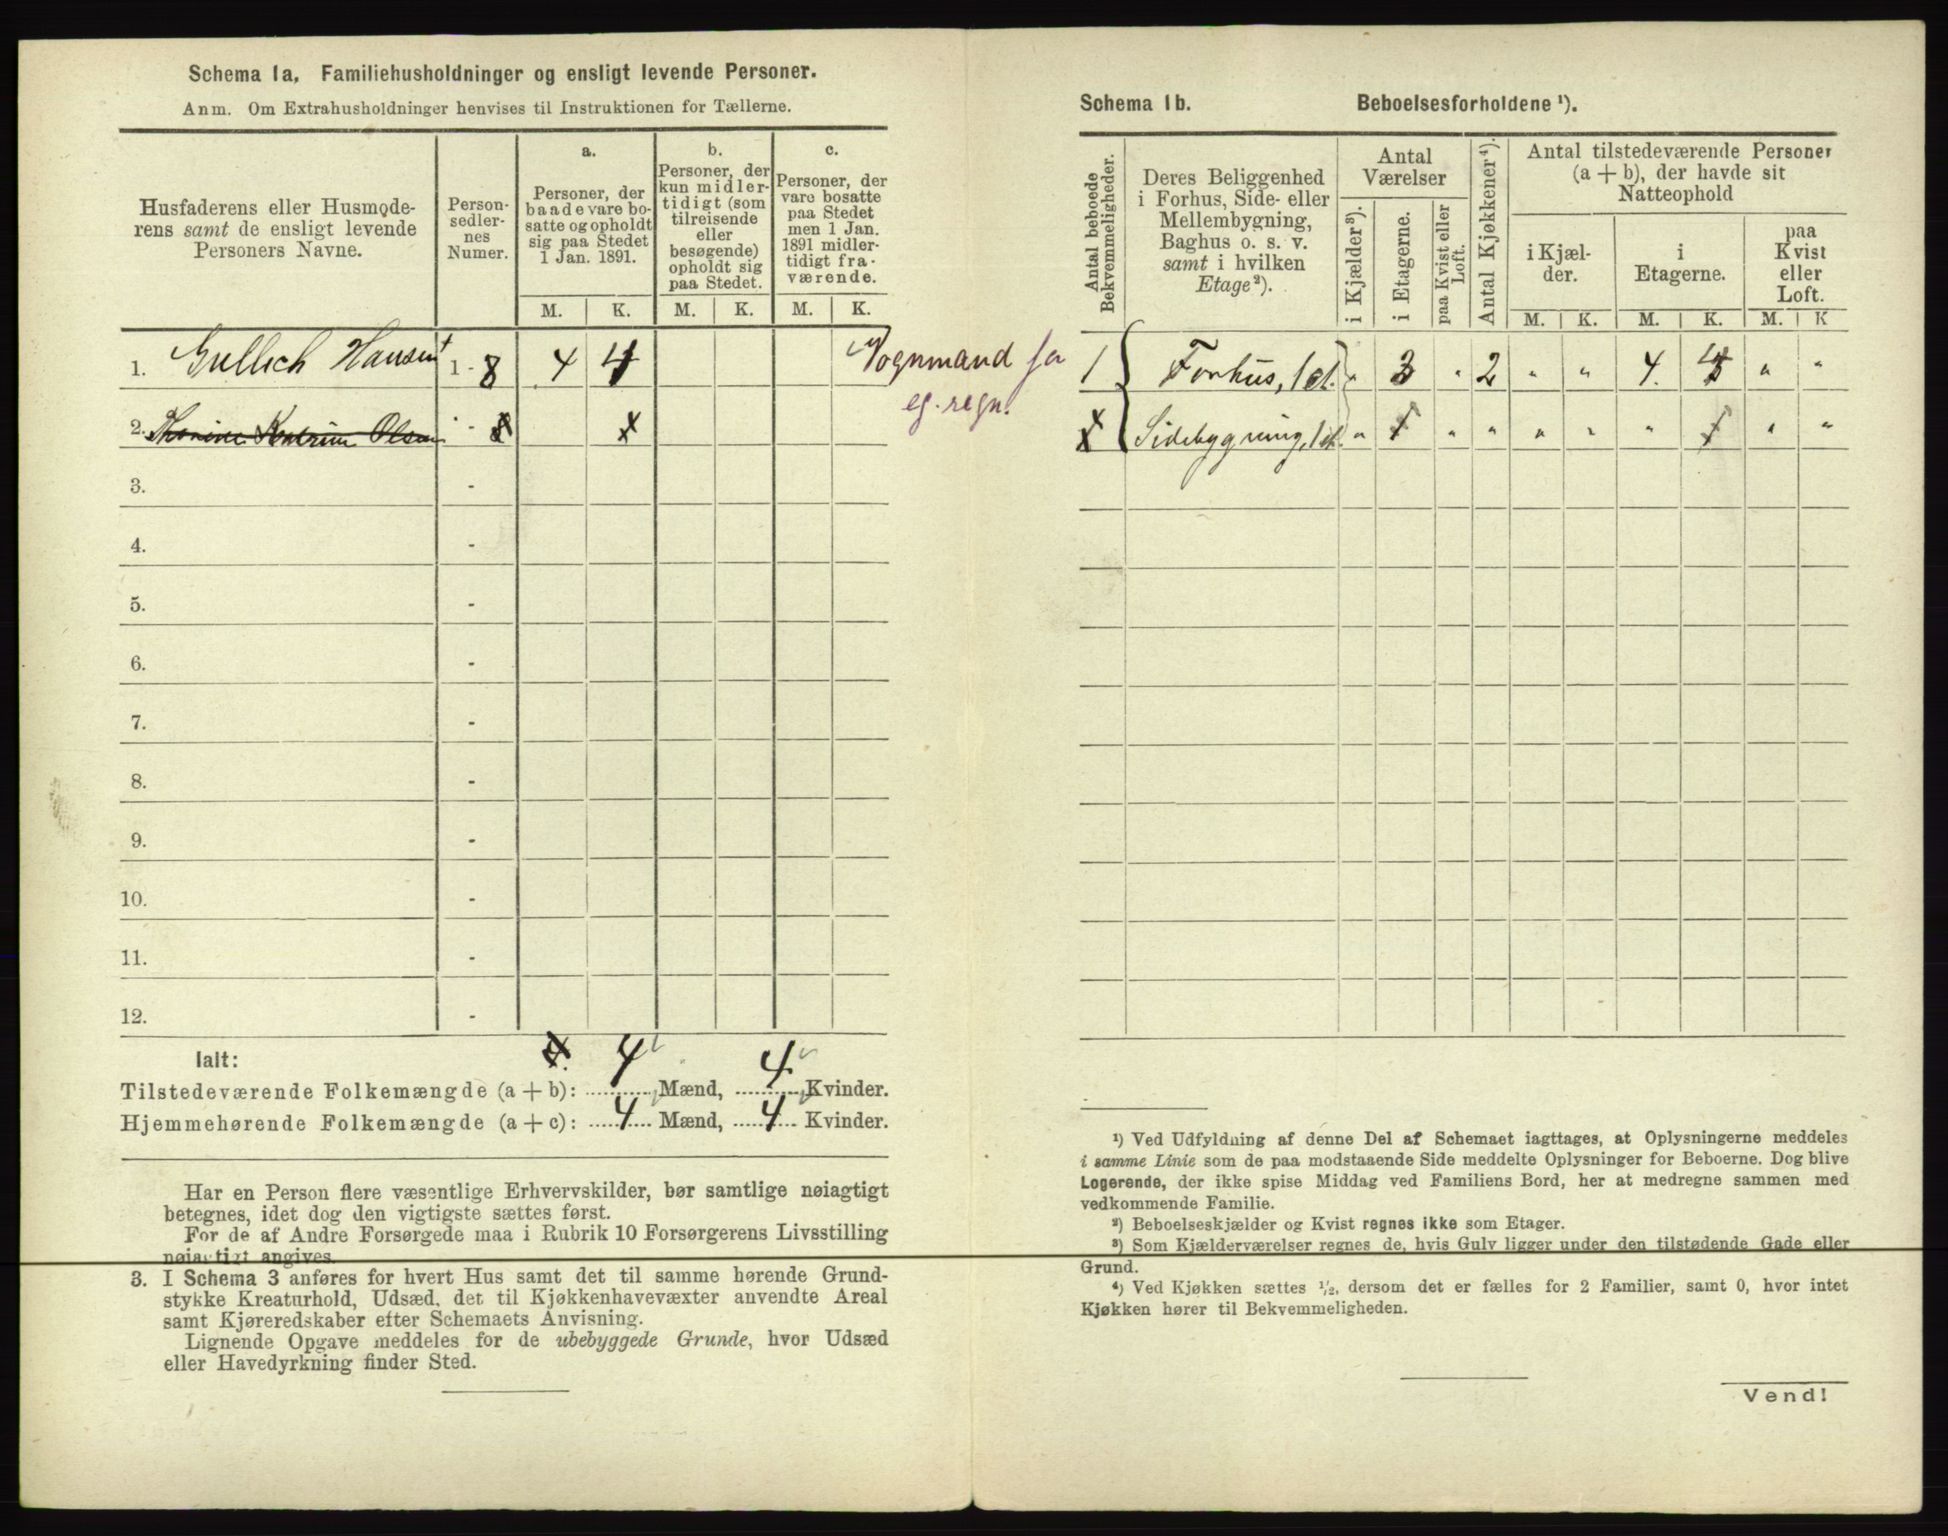 Schema 1a. Familiehusholdninger og ensligt levende Personer.
Anm. Om Extrahusholdninger henvises til Instruktionen for Tællerne.
Husfaderens eller Husmoderens samt de ensligt levende Personers Navne.
Personsedlernes Numer.
a.
Personer, der baade vare bosatte og opholdt sig paa Stedet 1 Jan. 1891.
b.
Personer, der kun midlertidigt (som tilreisende eller besøgende) opholdt sig paa Stedet.
c.
Personer, der vare bosatte paa Stedet men 1 Jan. 1891 midlertidigt fraværende.
M. K. M. K. M. K.
1. Gullich Hansen 1 - 8 4 4 Vognmand for
eg. regn.
2. Thonine Katrine Olsen -
3. -
4. -
5. -
6. -
7. -
8. -
9. -
10. -
11. -
12. -
Ialt:
Tilstedeværende Folkemængde (a + b): 4 Mænd, 4 Kvinder.
Hjemmehørende Folkemængde (a + c): 4 Mænd, 4 Kvinder.
Har en Person flere væsentlige Erhvervskilder, bør samtlige nøiagtigt
betegnes, idet dog den vigtigste sættes først.
For de af Andre Forsørgede maa i Rubrik 10 Forsørgerens Livsstilling
nøiagtigt angives.
3. I Schema 3 anføres for hvert Hus samt det til samme hørende Grund-
stykke Kreaturhold, Udsæd, det til Kjøkkenhavevæxter anvendte Areal
samt Kjøreredskaber efter Schemaets Anvisning.
Lignende Opgave meddeles for de ubebyggede Grunde, hvor Udsæd
eller Havedyrkning finder Sted.
Schema 1b. Beboelsesforholdene ¹).
Antal beboede Bekvemmeligheder.
Deres Beliggenhed i Forhus, Side- eller Mellembygning, Baghus o. s. v. samt i hvilken Etage²).
Antal Værelser
i Kjælder³).
i Etagerne.
paa Kvist eller Loft.
Antal Kjøkkener⁴).
Antal tilstedeværende Personer (a + b), der havde sit Natteophold
i Kjælder.
i Etagerne.
paa Kvist eller Loft.
M. K. M. K. M. K
1 Forhus, 1 et. " 3 " 2 " " 4. 4 " "
Sidebygning, 1 et. " 1 " " " " " 1 " "
¹) Ved Udfyldning af denne Del af Schemaet iagttages, at Oplysningerne meddeles
i samme Linie som de paa modstaaende Side meddelte Oplysninger for Beboerne. Dog blive
Logerende, der ikke spise Middag ved Familiens Bord, her at medregne sammen med
vedkommende Familie.
²) Beboelseskjælder og Kvist regnes ikke som Etager.
³) Som Kjælderværelser regnes de, hvis Gulv ligger under den tilstødende Gade eller
Grund.
⁴) Ved Kjøkken sættes ½, dersom det er fælles for 2 Familier, samt 0, hvor intet
Kjøkken hører til Bekvemmeligheden.
Vend!